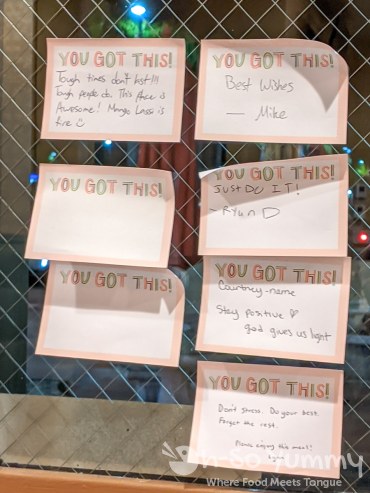 YOU GOT THIS!
Tough times don't last!!!
Tough people do. This place is
Awesome! Mango Lassi is
fire
YOU GOT THIS!
Best Wishes
— Mike
YOU GOT THIS!
YOU GOT THIS!
JUST DO IT!
- Ryan D
YOU GOT THIS!
YOU GOT THIS!
Courtney-name
Stay positive
god gives us light
YOU GOT THIS!
Don't stress. Do your best.
Forget the rest.
Please enjoy this meal!
Oh-So Yummy
Where Food Meets Tongue